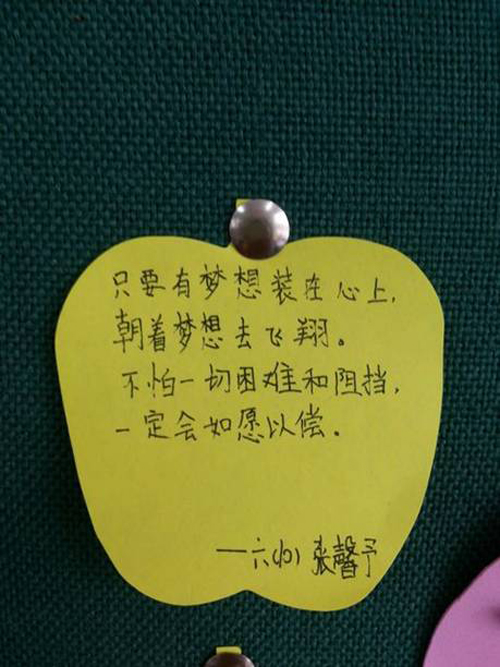 只要有梦想装在心上,
朝着梦想去飞翔。
不怕一切困难和阻挡,
一定会如愿以偿。
——六(10) 张馨予